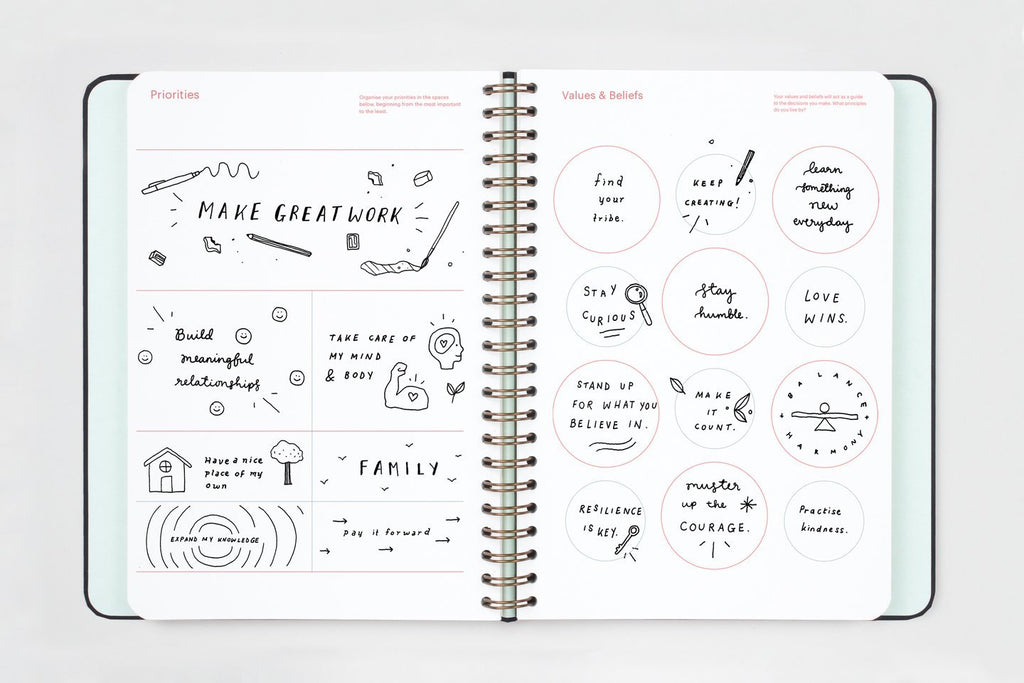 Priorities
Organise your priorities in the spaces
below, beginning from the most important
to the least.
MAKE GREAT WORK
Build
meaningful
relationships
TAKE CARE OF
MY MIND
& BODY
Have a nice
place of my
own
FAMILY
EXPAND MY KNOWLEDGE
Pay it forward
Values & Beliefs
Your values and beliefs will act as a guide
to the decisions you make. What principles
do you live by?
find
your
tribe.
KEEP
CREATING!
learn
something
new
everyday
STAY
CURIOUS
stay
humble.
LOVE
WINS.
STAND UP
FOR WHAT YOU
BELIEVE IN.
MAKE
IT
COUNT.
BALANCE
HARMONY
RESILIENCE
IS KEY.
muster
up the
COURAGE.
Practise
kindness.